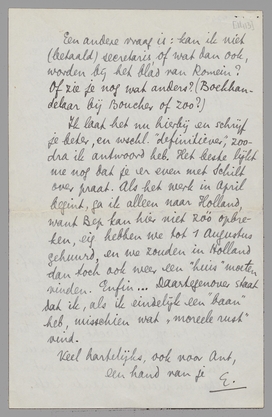 Een andere vraag is: kan ik niet
(betaald) secretaris, of wat dan ook,
worden bij het blad van Romein?
Of zie je nog wat anders? (Boekhan-
delaar bij Boucher of zoo?)
Ik laat het nu hierbij en schrijf
je beter, en wschl. "definitiever", zoo-
dra ik antwoord heb. Het beste lijkt
me nog dat je er even met Schilt
over praat. Als het werk in April
begint, ga ik alleen naar Holland,
want Bep kan hier niet zoo opbre-
ken, eig. hebben we tot 1 Augustus
gehuurd, en we zouden in Holland
dan toch ook weer een "huis" moeten
vinden. Enfin... Daartegenover staat
dat ik, als ik eindelijk een "baan"
heb, misschien wat "moreele rust"
vind.
Veel hartelijks, ook voor Ant,
een hand van je
E.